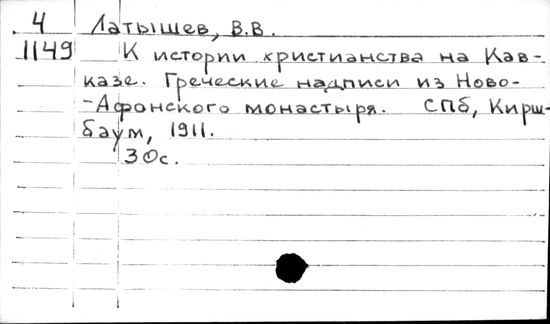 4 Латышев, В.В.
1149 К истории христианства на Кав-
казе. Греческие надписи из Ново-
-Афонского монастыря. СПб, Кирш-
баум, 1911.
30с.